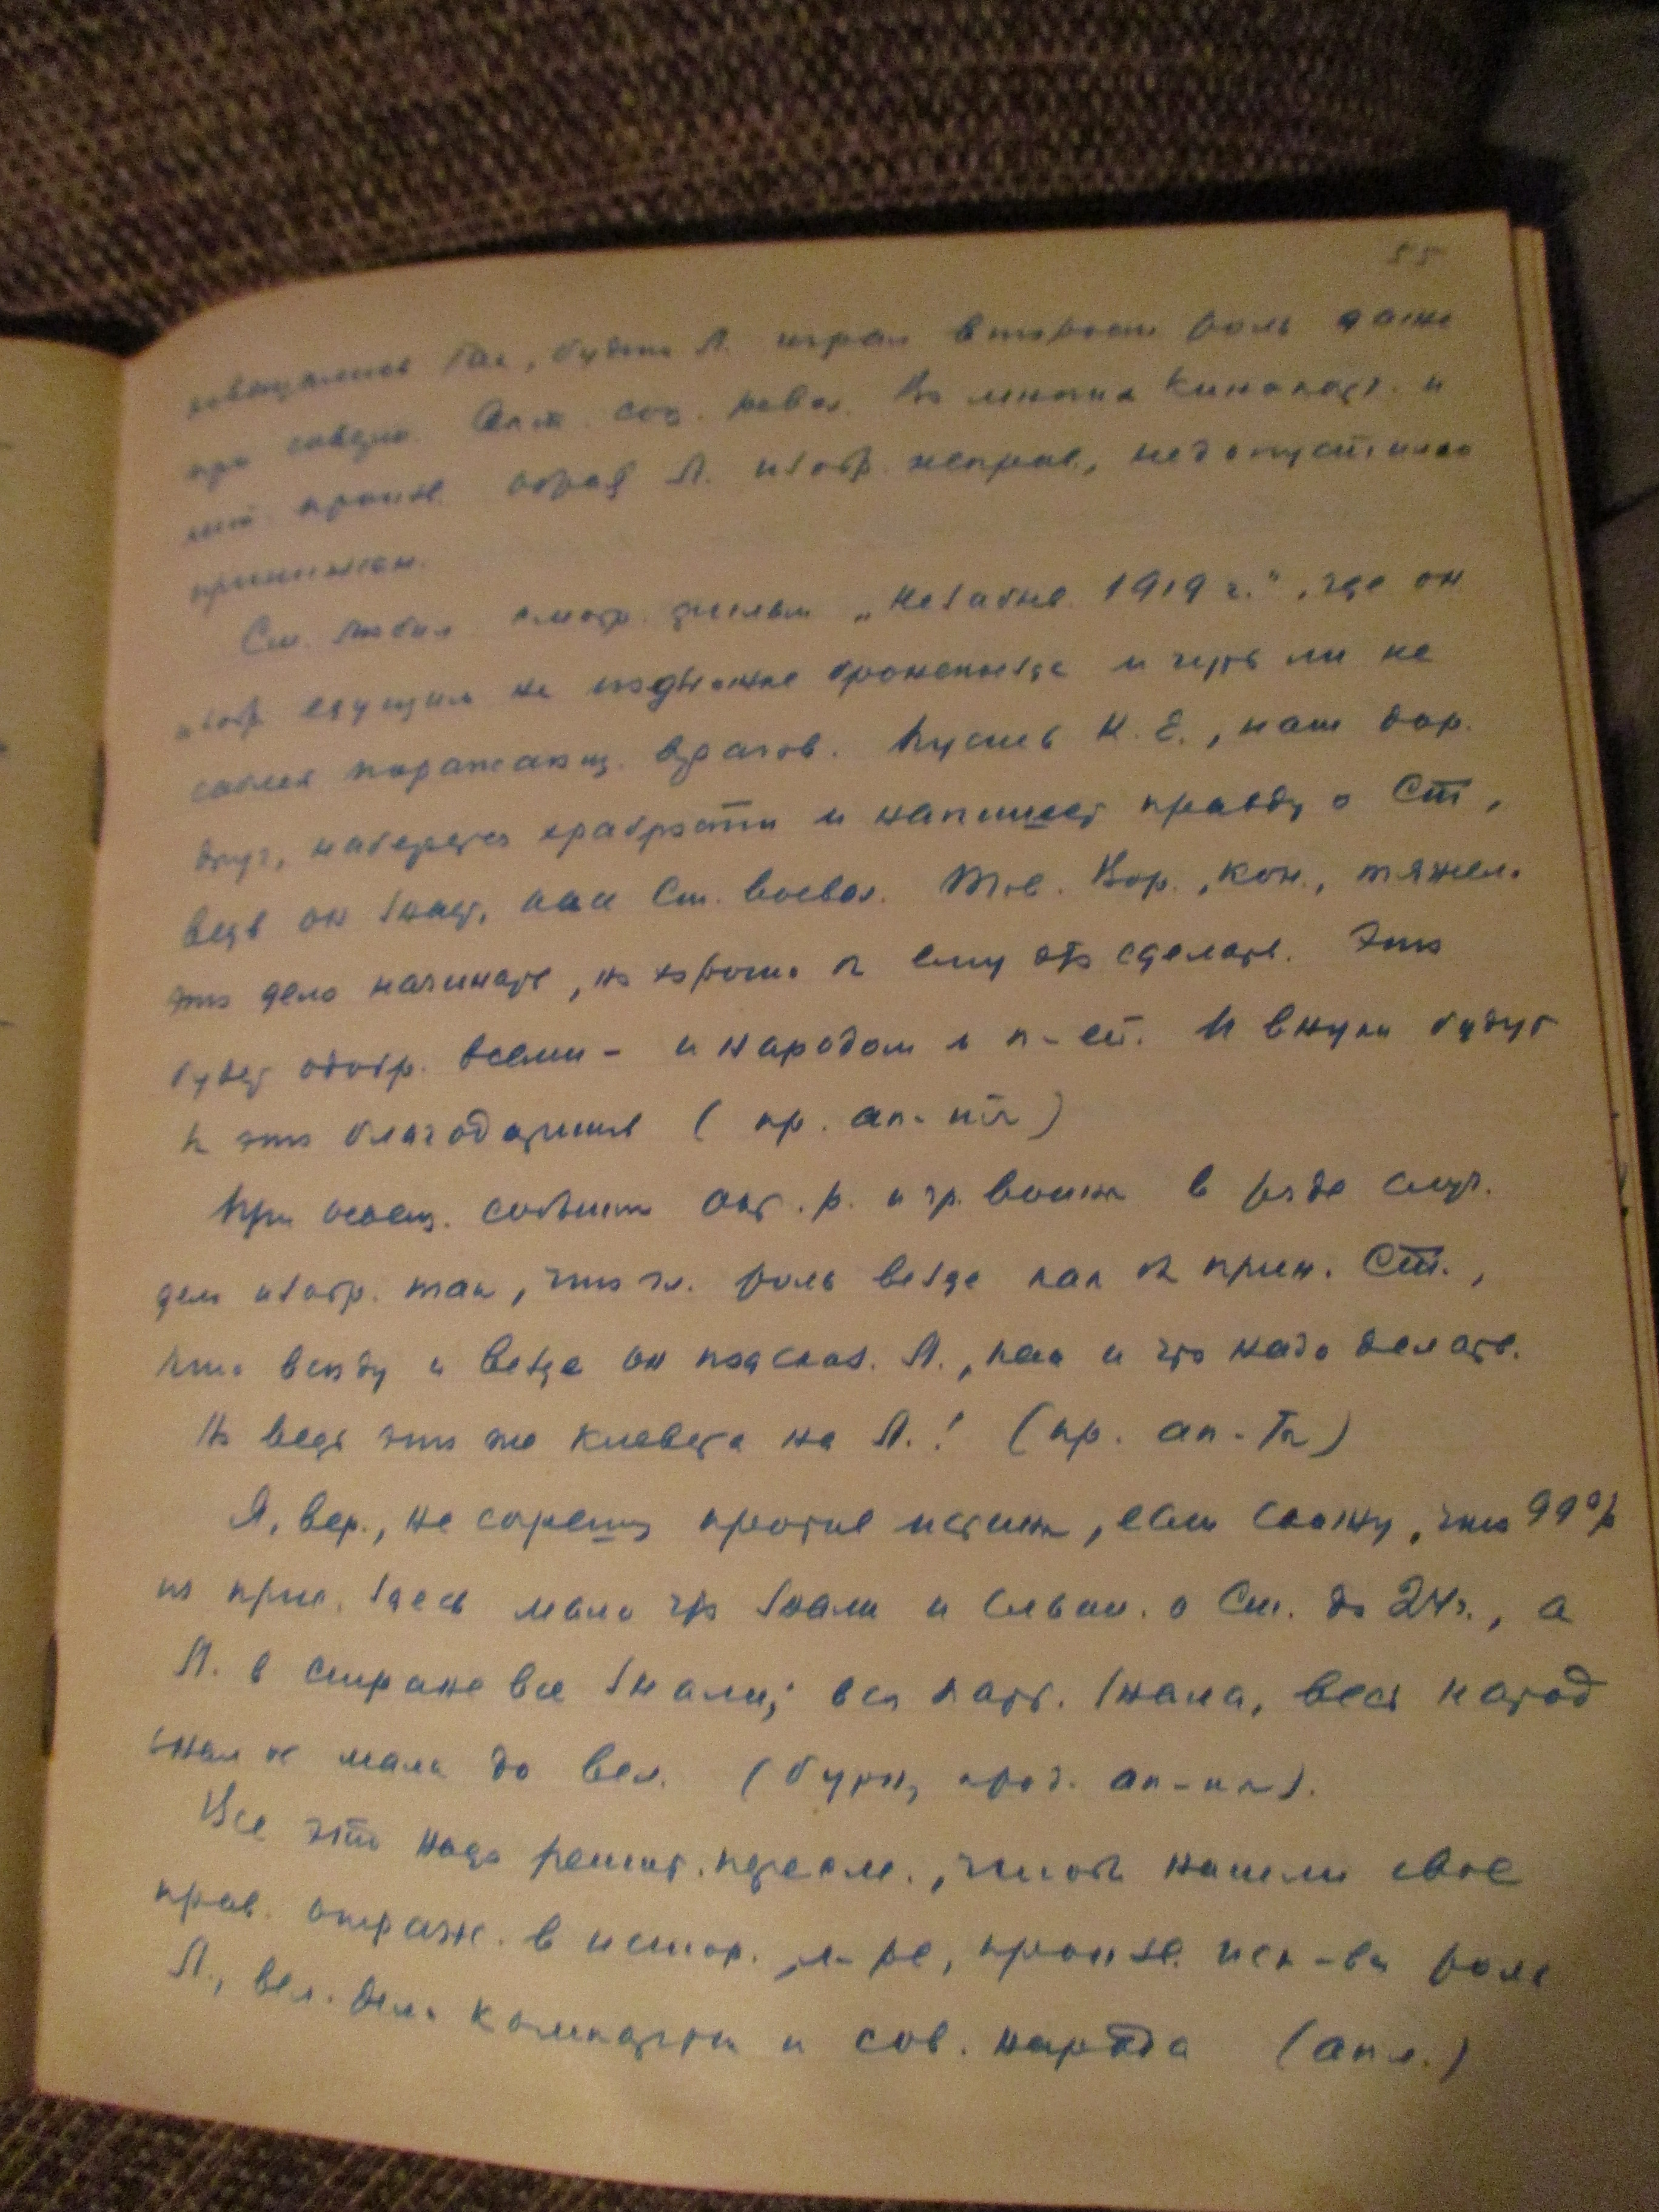 55
освещались так, будто Л. играл второст. роль даже
при соверш. Окт. соц. револ. Во многих кинокарт. и
лит. произв. образ Л. изобр. неправ., недопустимо
принижен.
Ст. любил смотр. фильм „Незабыв. 1919 г.", где он
изобр. едущим на подножке бронепоезда и чуть ли не
саблей поражающ. врагов. Пусть К. Е., наш дор.
друг, наберется храбрости и напишет правду о Ст.,
ведь он знает, как Ст. воевал. Тов. Вор., кон., тяжел.
это дело начинать, но хорошо б ему это сделать. Это
будет одобр. всеми - и народом и п-ей. И внуки будут
за это благодарить (пр. ап-ты)
При освещ. событий Окт. р. и гр. войны в ряде случ.
дело изобр. так, что гл. роль везде как б прин. Ст.,
что всюду и везде он подсказ. Л., как и что надо делать.
Но ведь это же клевета на Л.! (пр. ап-ты)
Я, вер., не согрешу против истины, если скажу, что 99%
из прис. здесь мало что знали и слыш. о Ст. до 24 г., а
Л. в стране все знали; вся парт. знала, весь народ
знал от мала до вел. (бурн, прод. ап-ты).
Все это надо решит. пересм., чтоб нашли свое
прав. отраж. в истор., л-ре, произв. иск-ва роль
Л., вел. дела компартии и сов. народа (апл.)